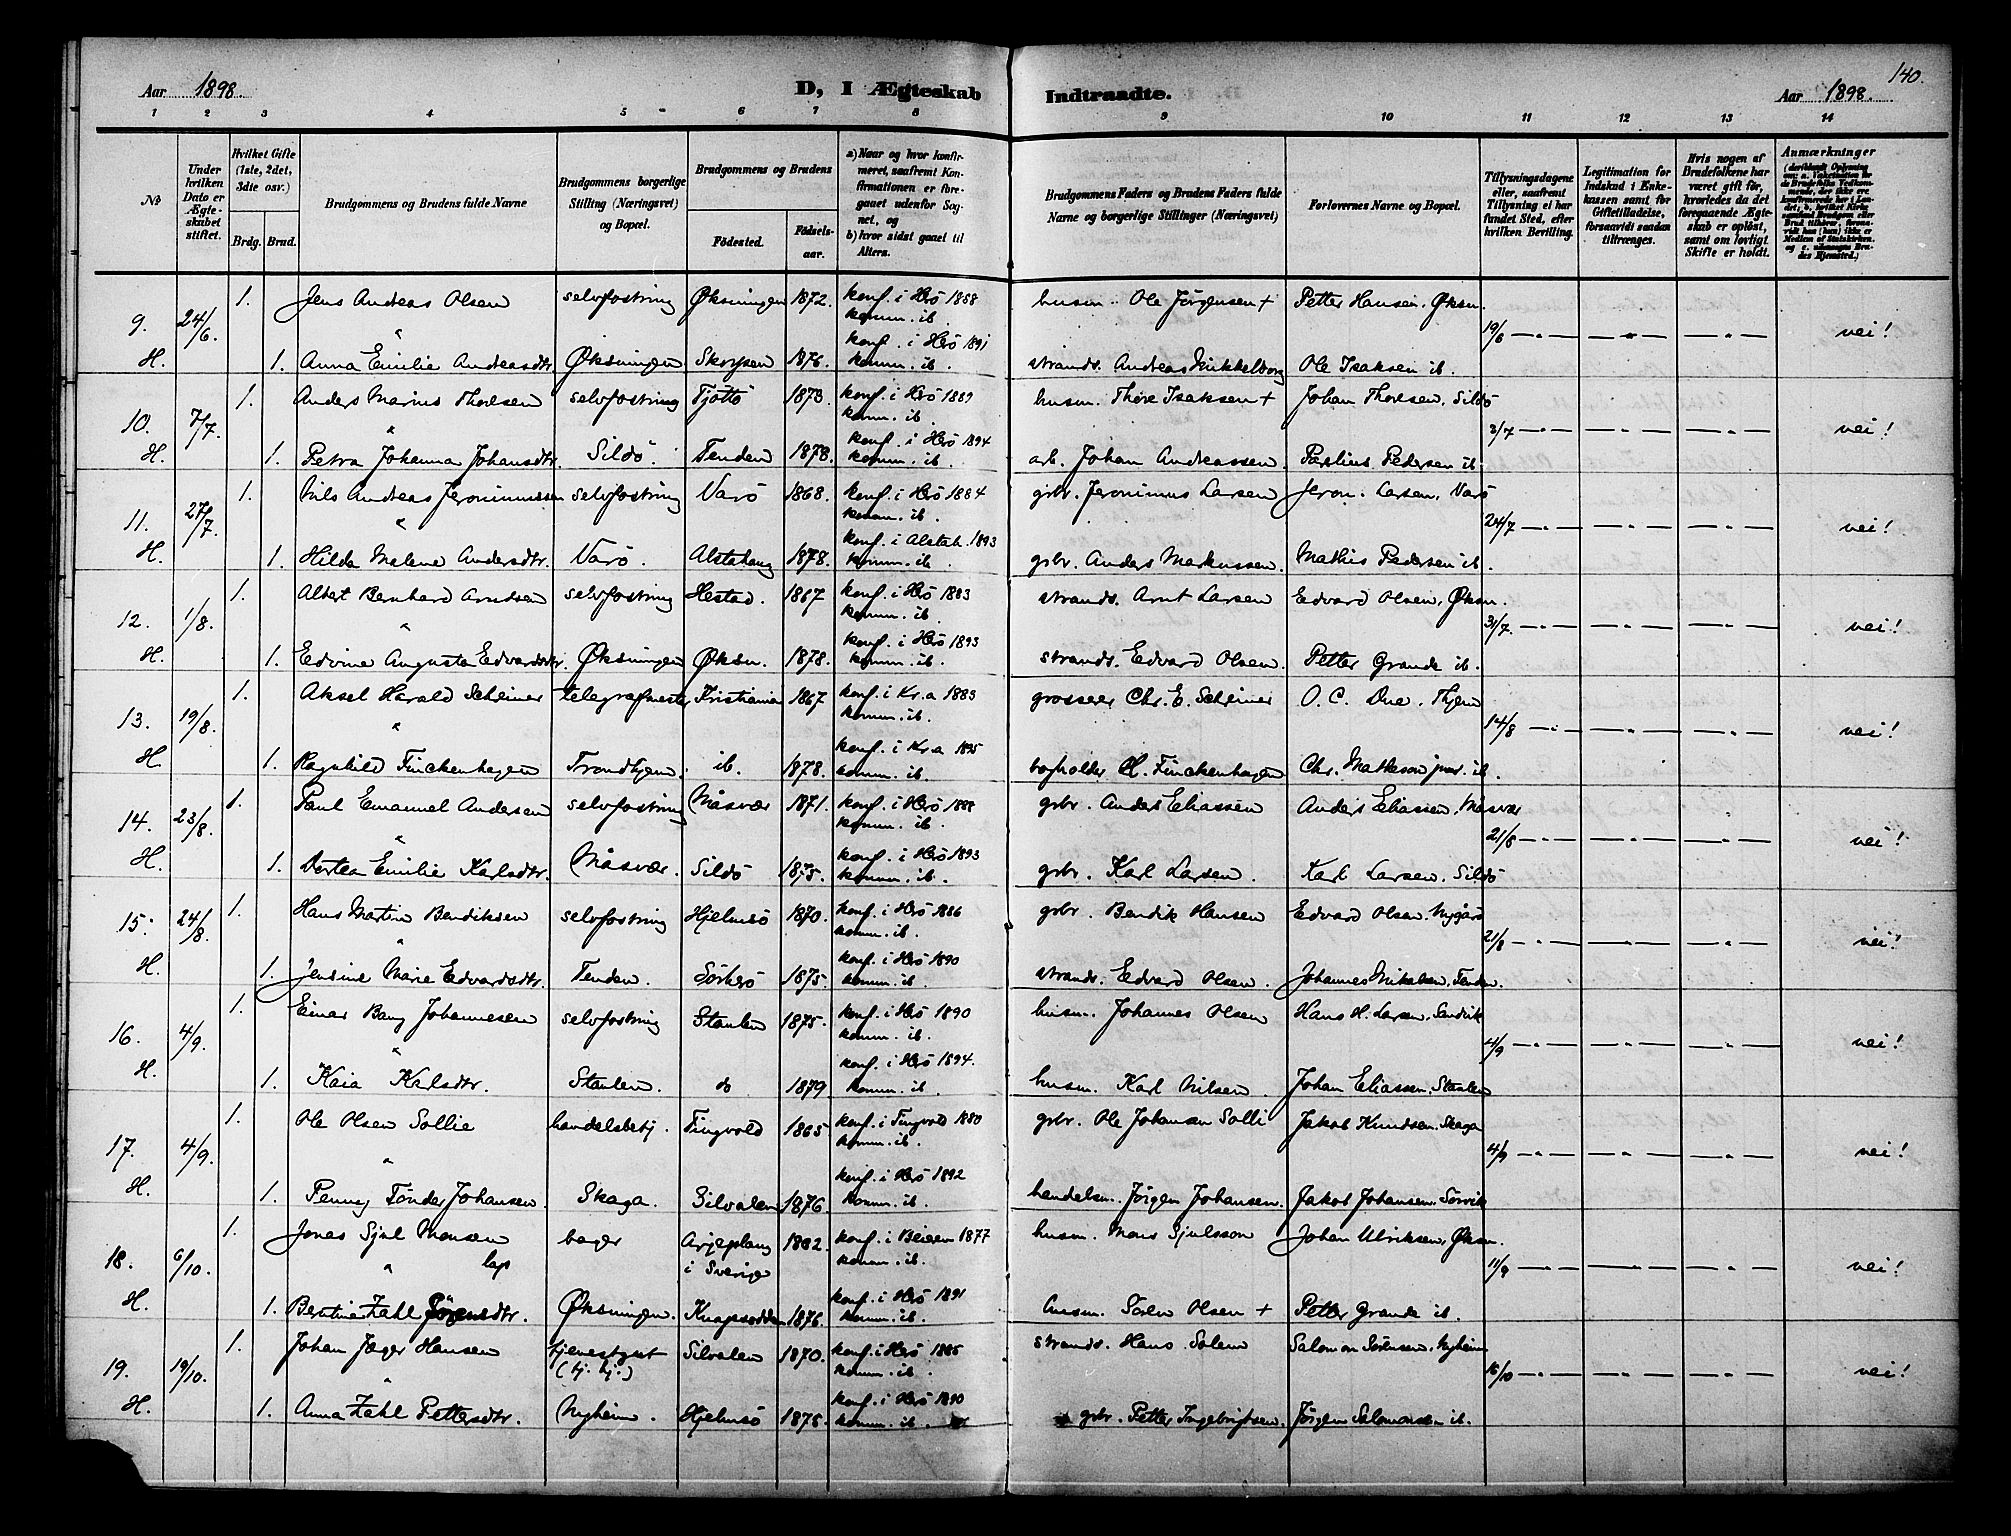 140.
Aar 1898. D, I Ægteskab Indtraadte. Aar 1898.
1 2 3 4 5 6 7 8 9 10 11 12 13 14
№
Under hvilken Dato er Ægteskabet stiftet.
Hvilket Gifte (1ste, 2det, 3die osv.)
Brdg. Brud.
Brudgommens og Brudens fulde Navne
Brudgommens borgerlige Stilling (Næringsvei) og Bopæl.
Brudgommens og Brudens
Fødested. Fødselsaar.
a) Naar og hvor konfirmeret, saafremt Konfirmationen er foregaaet udenfor Sognet, og
b) hvor sidst gaaet til Alters.
Brudgommens Faders og Brudens Faders fulde Navne og borgerlige Stillinger (Næringsvei)
Forlovernes Navne og Bopæl.
Tillysningsdagene eller, saafremt Tillysning ei har fundet Sted, efter hvilken Bevilling.
Legitimation for Indskud i Enkekassen samt for Giftetilladelse, forsaavidt saadan tiltrænges.
Hvis nogen af Brudefolkene har været gift før, hvorledes da det foregaaende Ægteskab er opløst, samt om lovligt Skifte er holdt.
Anmærkninger
9. 24/6 1. Jens Andreas Olsen selvfostring Øksningen 1872. konf. i Herö 1888 komm. ib husm. Ole Jörgensen + Petter Hansen, Øksn. 19/6 nei!
H. 1. Anna Emilie Andreasdtr. Øksningen Skorpen 1876. konf. i Herö 1891 komm. ib. strands. Andreas Mikkelborg Ole Isaksen ib.
10. 7/7. 1. Anders Marius Thoresen selvfostring Tjöttö 1873. konf. i Herö 1889 komm. ib. husm. Thore Isaksen + Johan Thoresen, Sildö 3/7 nei!
H. 1. Petra Johanna Johansdtr. Sildö. Tenden 1878. konf. i Herö 1894 komm. ib. arb. Johan Andreassen. Pedersen ib.
11. 27/7. 1. Nils Andreas Jeronimussen selvfostring Varö 1868. konf. i Herö 1884 komm. ib. grbr. Jeronimus Larsen Jeron. Larsen, Varö 24/7 nei!
H. 1. Hilda Malene Andersdtr. Varö. Alstahaug 1878. konf. i Alstah. 1893 komm. ib. grbr. Anders Markussen. Mathis Pedersen ib.
12. 1/8. 1. Albert Bernhard Arndsen selvfostring Hestad. 1867 konf. i Herö 1883 komm. ib. strands. Arnt Larsen Edvard Olsen, Øksn. 31/7. nei!
H. 1. Edvine Augusta Edvardsdtr. Øksningen Øksn. 1878. konf. i Herö 1893 komm. ib. strands. Edvard Olsen. Petter Grande ib.
13. 19/8. 1. Aksel Harald Schreiner telegrafmester Kristiania 1867 konf. i Kr.a 1883 komm. ib. grosserer Chr. E. Schreiner O. C. Due. Thjem 14/8 nei!
H. 1. Ragnhild Finckenhagen Trondhjem. ib. 1878. konf. i Kr.a 1895 komm. ib. bogholder Finckenhagen Chr. Matheson jnr. ib.
14. 23/8. 1. Paul Emanuel Andersen selvfostring Måsvær 1871. konf. i Herö 1888 komm. ib. grbr. Anders Eliassen Anders Eliassen, Måsvær 21/8 nei!
H. 1. Dortea Emilie Karlsdtr. Måsvær. Sildö 1875. konf. i Herö 1893 komm. ib. grbr. Karl Larsen. Karl Larsen, Sildö
15. 24/8. 1. Hans Martin Bendiksen selvfostring Hjelmsö 1870. konf. i Herö 1886 komm. ib. grbr. Bendik Hansen Edvard Olsen, Nygård 21/8 nei!
H. 1. Jensine Marie Edvardsdtr. Tenden. Sörherö 1875. konf. i Herö 1890 komm. ib. strands. Edvard Olsen. Johannes Mikalsen, Tenden.
16. 4/9. 1. Einar Bang Johannesen selvfostring Staulen 1875. konf. i Herö 1890 komm. ib. husm. Johannes Olsen Hans H. Larsen, Sandvik 4/9 nei!
H. 1. Kaia Karlsdtr. Staulen. do 1879 konf. i Herö 1894. komm. ib. husm. Karl Nilsen. Johan Eliassen, Staulen
17. 4/9. 1. Ole Olsen Sollie handelsbetj. Tingvold 1865 konf. i Tingvold 1880 komm. ib. grbr. Ole Johansen Solli Jakob Knudsen, Skaga 4/9 nei!
H. 1. Penny Tönder Johansen. Skaga. Silvalen 1876. konf. i Herö 1892 komm. ib. handelsm. Jörgen Johansen. Jakob Johansen, Sörvik
18. 6/10. 1. Jonas Sjul Monsen lap bager Arjeplaug i Sverige 1862. konf. i Beieren 1877 komm. ib. husm. Mons Sjulsson Johan Ulriksen, Øksn. 11/9 nei!
H. 1. Bentine Zahl Sörensdtr. Øksningen. 1876. konf. i Herö 1891 komm. ib. husm. Sören Olsen + Petter Grande ib.
19. 19/10. 1. Johan Jæger Hansen tjenestgut (tj. hj.) Silvalen 1870. konf. i Herö 1885 komm. ib. strands. Hans Solem Salomon Sörensen, Nyheim 16/10 nei!
H. 1. Anna Zahl Pettersdtr. Nyheim. Hjelmsö 1875. konf. i Herö 1890 komm. ib. grbr. Petter Ingebrigtsen. Jörgen Salomonsen ib.